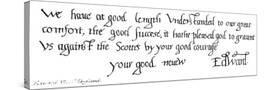 We have at good length Understanded to our great
comfort, the good succese, it hathe pleased god to graunt
Us against the Scottes by your good courage
your good neuew Edward